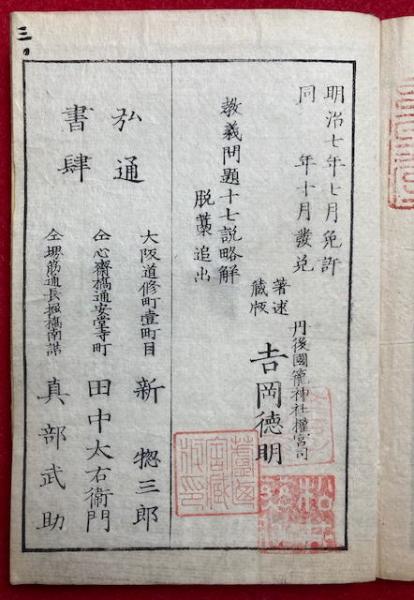 三
明治七年七月免許
同 年十月發兌
丹後國籠神社權宮司
著述
藏版
吉岡徳明
教義問題十七説略解
脱藁追出
弘通
書肆
大阪道修町壹町目
新 惣三郎
仝心齋橋通安堂寺町
田中太右衛門
仝堺筋通長堀橋南詰
真部武助